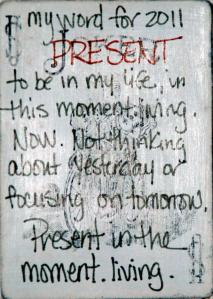 my word for 2011
PRESENT
to be in my life, in
this moment. living.
Now. Not thinking
about yesterday or
focusing on tomorrow.
Present in the
moment. living.